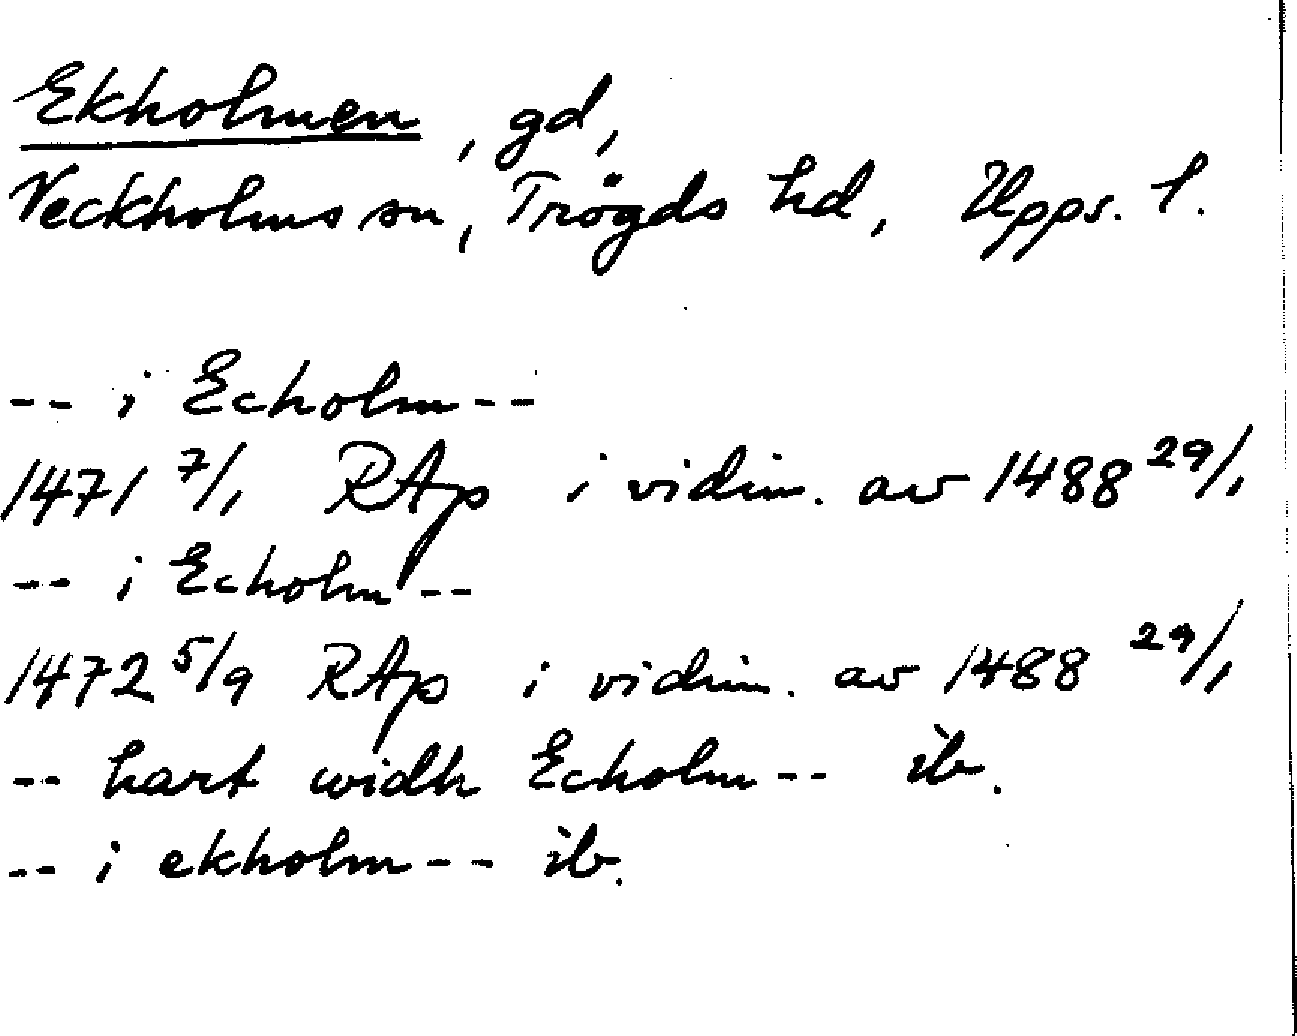 Ekholmen, gd,
Veckholms sn, Trögds hd, Upps. l.
-- i Echolm --
1471 7/1 RAp i vidim. av 1488 29/1
-- i Echolm --
1472 5/9 RAp i vidim. av 1488 29/1
-- hart widh Echolm -- ib.
-- i ekholm -- ib.